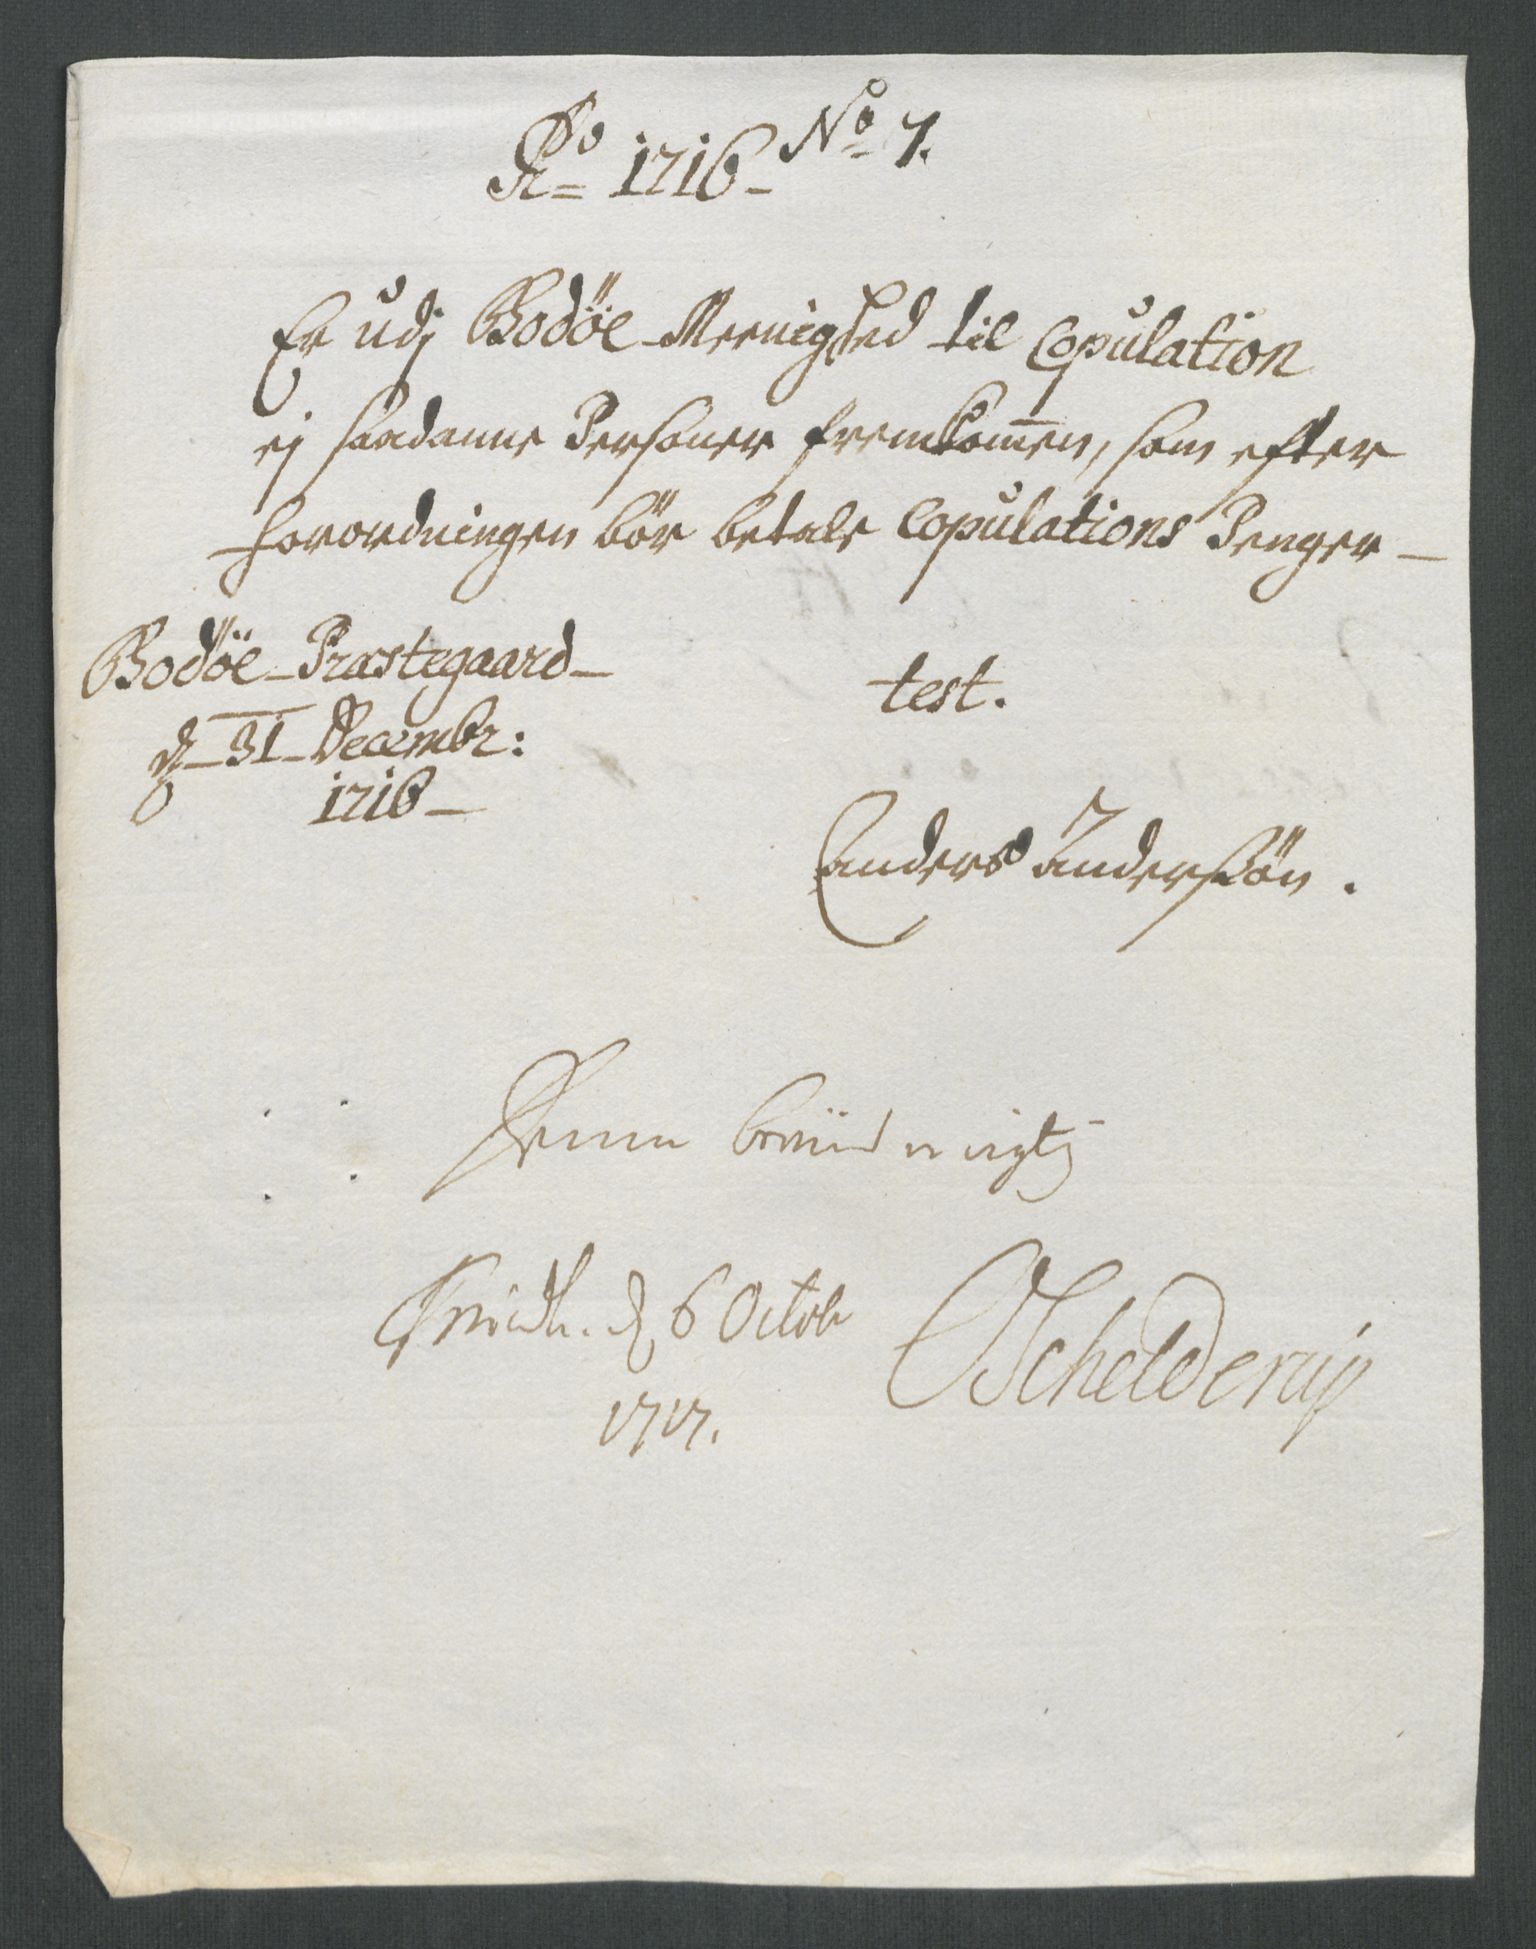 Ao 1716 No 7.
Er udj Bodöe Meenighed til Copulation
ej saadanne Personer fremkommen, som efter
forordningen bör betale Copulations Penger
Bodöe Præstegaard
test.
d 31 Decembr:
1716
Anders Anderssön.
Denne er rigtig
d 6 Octob
1717.
Schelderup